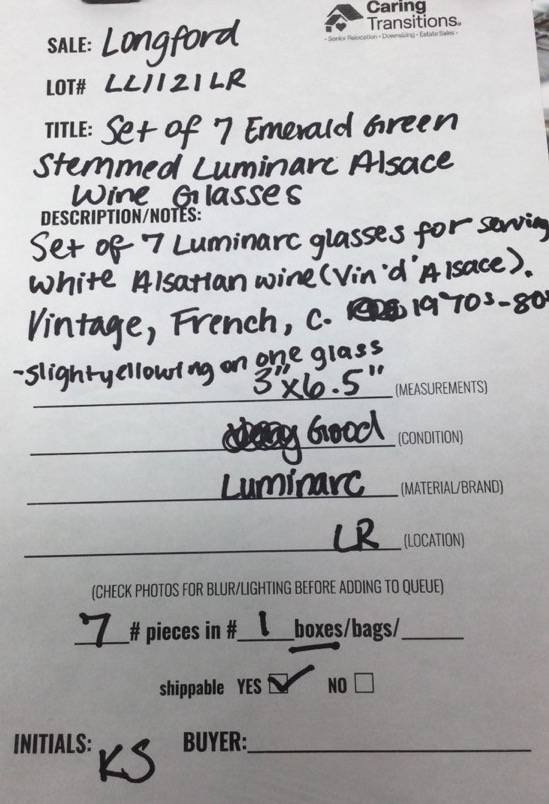 Caring
Transitions.
- Senior Relocation - Downsizing - Estate Sales -
SALE: Longford
LOT# LL1121LR
TITLE: Set of 7 Emerald Green
Stemmed Luminarc Alsace
Wine Glasses
DESCRIPTION/NOTES:
Set of 7 Luminarc glasses for serving
white Alsatian wine (Vin 'd' Alsace).
Vintage, French, c. 1970s-80s
-slight yellowing on one glass
3"x6.5" (MEASUREMENTS)
Good (CONDITION)
Luminarc (MATERIAL/BRAND)
LR (LOCATION)
(CHECK PHOTOS FOR BLUR/LIGHTING BEFORE ADDING TO QUEUE)
7 # pieces in # 1 boxes/bags/
shippable YES NO
INITIALS: KS BUYER: